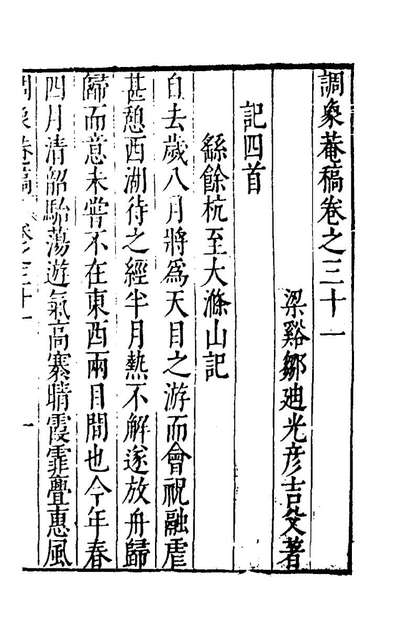 調象菴稿卷之三十一
梁谿鄒廸光彦吉父著
記四首
繇餘杭至大滌山記
自去歲八月將爲天目之游而會祝融虐
甚憩西湖待之經半月熱不解遂放舟歸
歸而意未嘗不在東西兩目間也今年春
四月清韶駘蕩遊氣高褰晴霞霏亹惠風
調象菴稿 卷之三十一 一